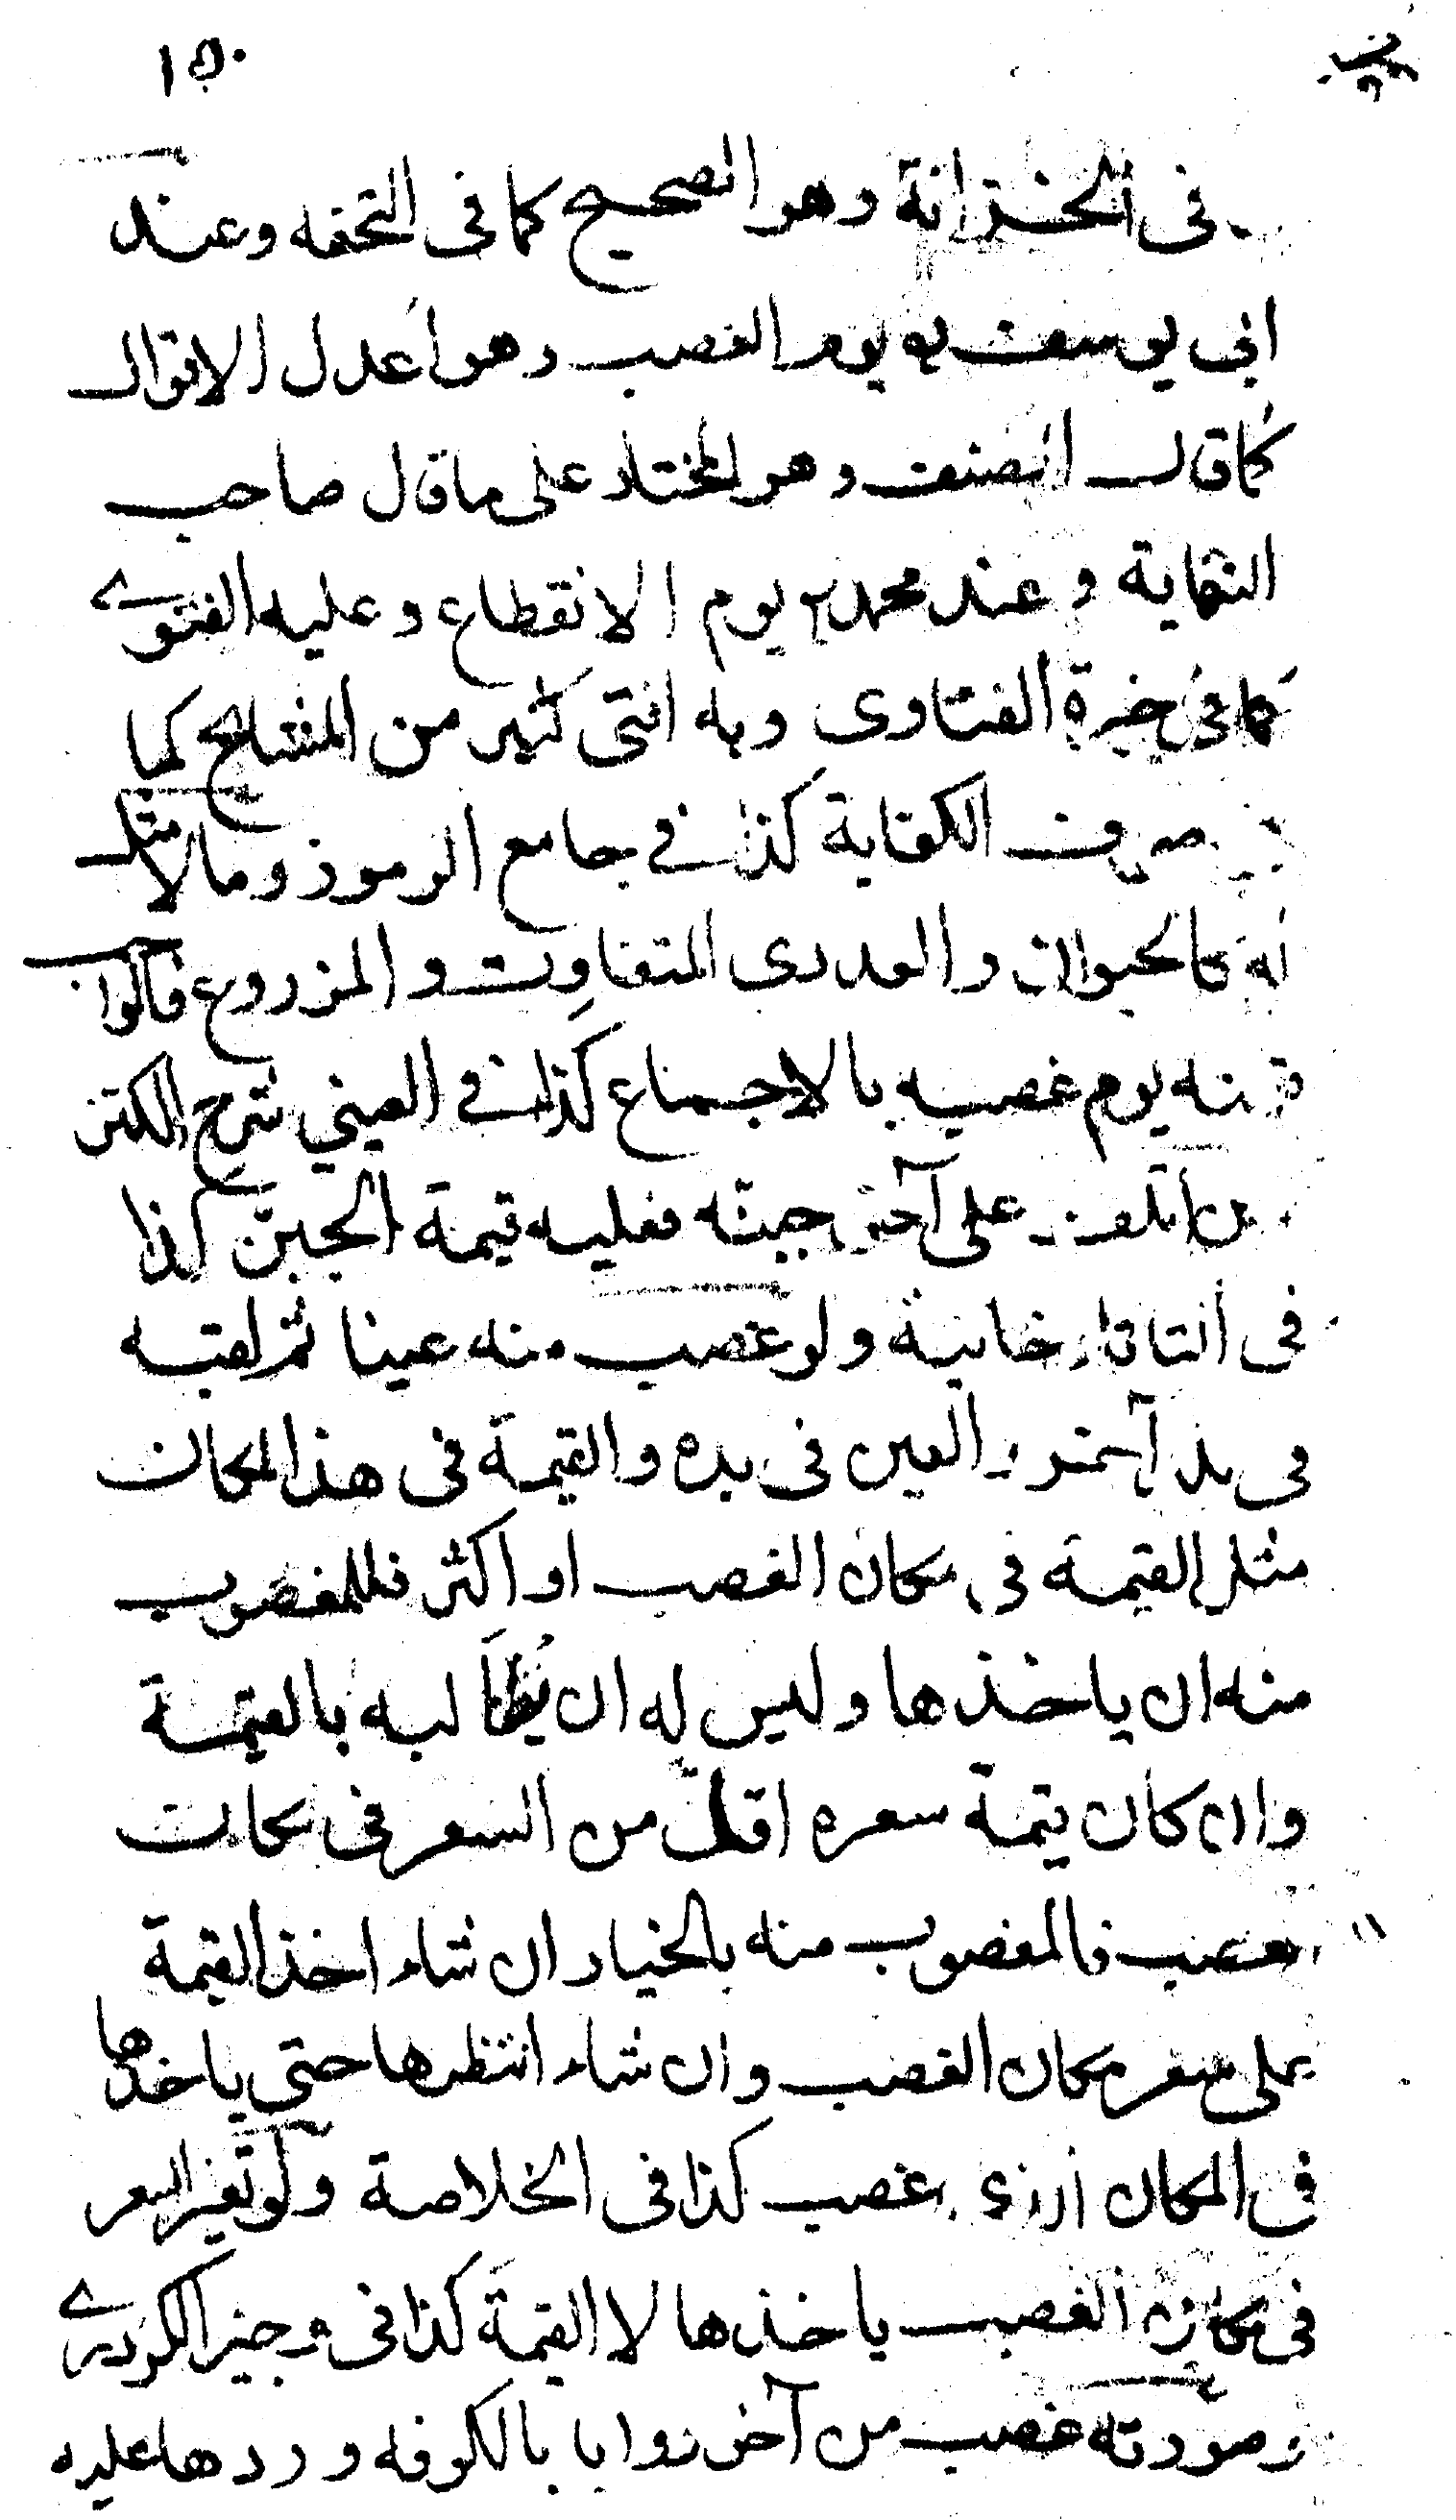 ١٥٠
في الخزانة وهو الصحيح كما في التحفه وعند
ابي يوسف يوم الغصب وهو أعدل الاقوال
كما قال المصنف وهو المختار على ما قال صاحب
النهاية وعند محمد يوم الانقطاع وعليه الفتوے
كما في ذخيرة الفتاوى وبه افتى كثير من المشايخ كما
صرف الكفاية كذا في جامع الرموز وما لا مثل
له كالحيوان والعددى المتفاوت والمزروع فالواجب
قيمته يوم غصبه بالاجماع كذا في العيني شرح الكنز
من أتلف على آخر جبنه فعليه قيمة الجبن كذا
في التاتارخانية ولو غصب منه عينا ثم لقيه
في بلد آخر والعين في يده والقيمة في هذا المكان
مثل القيمة في مكان الغصب او اكثر فللمغصوب
منه ان ياخذها وليس له ان يُطالبه بالقيمة
وان كان قيمة سعره اقل من السعر في مكان
الغصب فالمغصوب منه بالخيار ان شاء اخذ القيمة
على سعر مكان الغصب وان شاء انتظرها حتى ياخذها
في المكان الذى غصب كذا في الخلاصة ولو تغير السعر
في مكان الغصب ياخذها لا القيمة كذا في وجيز الكردرے
وصورته غصب من آخر زوايا بالكوفه وردها عليه